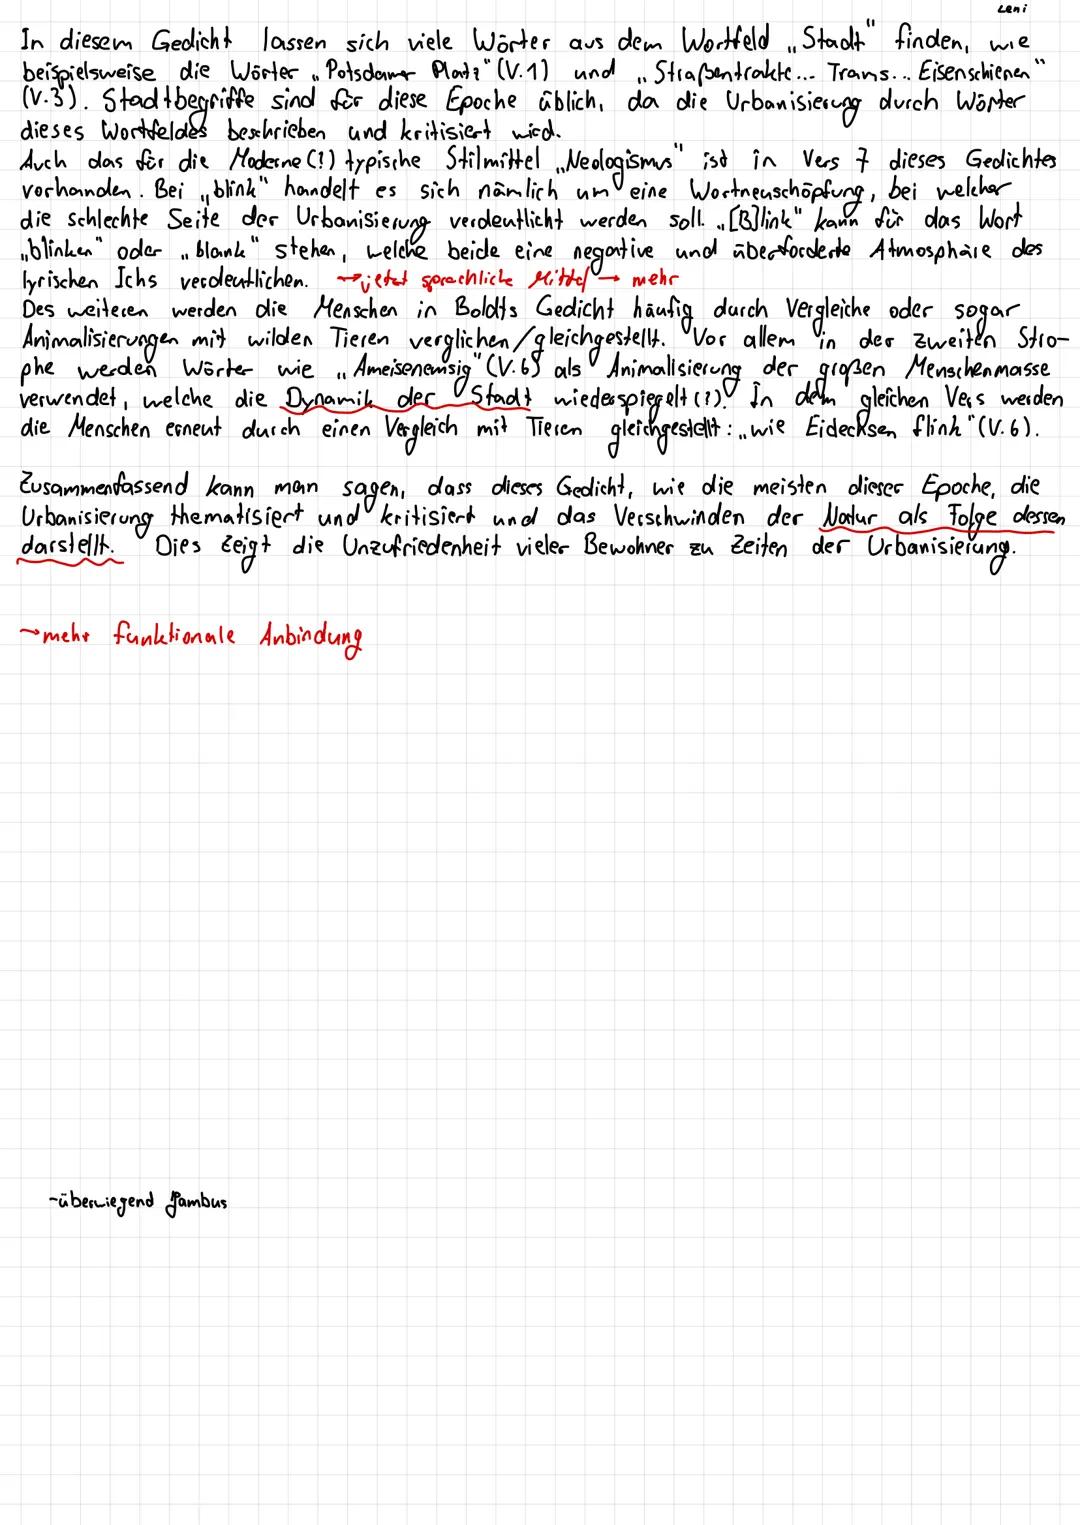 Leni
In diesem Gedicht lassen sich viele Wörter aus dem Wortfeld „Stadt" finden, wie
beispielsweise die Wörter „Potsdamer Platz" (V.1) und „Straßentrakte... Trams... Eisenschienen"
(V.3). Stadtbegriffe sind für diese Epoche üblich, da die Urbanisierung durch Wörter
dieses Wortfeldes beschrieben und kritisiert wird.
Auch das für die Moderne (?) typische Stilmittel „Neologismus" ist in Vers 7 dieses Gedichtes
vorhanden. Bei „blink" handelt es sich nämlich um eine Wortneuschöpfung, bei welcher
die schlechte Seite der Urbanisierung verdeutlicht werden soll. „[B]link" kann für das Wort
„blinken" oder „blank" stehen, welche beide eine negative und überforderte Atmosphäre des
lyrischen Ichs verdeutlichen. → jetzt sprachliche Mittel → mehr
Des weiteren werden die Menschen in Boldts Gedicht häufig durch Vergleiche oder sogar
Animalisierungen mit wilden Tieren verglichen/gleichgestellt. Vor allem in der zweiten Stro-
phe werden Wörter wie „Ameisenemsig" (V.6) als Animalisierung der großen Menschenmasse
verwendet, welche die Dynamik der Stadt wiederspiegelt (?). In dem gleichen Vers werden
die Menschen erneut durch einen Vergleich mit Tieren gleichgestellt: „wie Eidecksen flink" (V.6).
Zusammenfassend kann man sagen, dass dieses Gedicht, wie die meisten dieser Epoche, die
Urbanisierung thematisiert und kritisiert und das Verschwinden der Natur als Folge dessen
darstellt. Dies zeigt die Unzufriedenheit vieler Bewohner zu Zeiten der Urbanisierung.
→ mehr funktionale Anbindung
-überwiegend Jambus